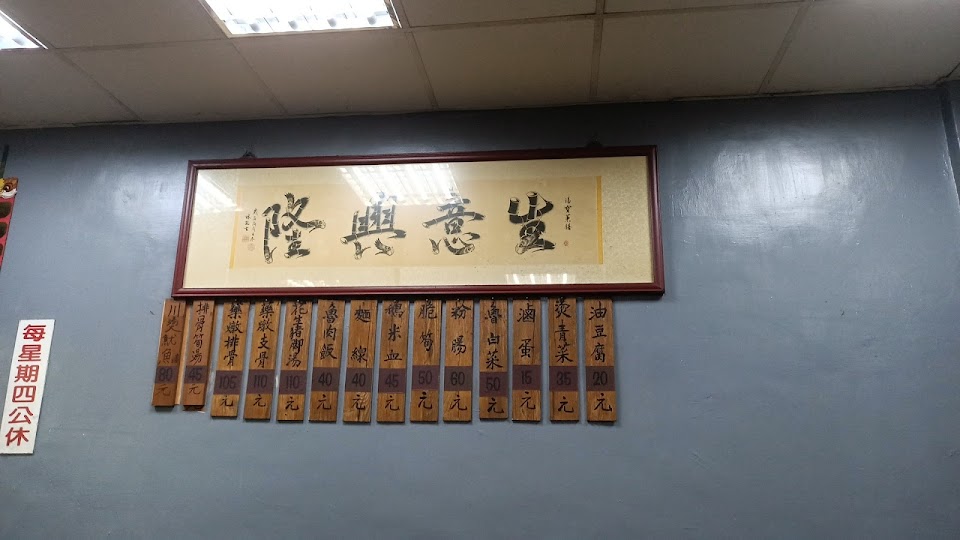 生意興隆
油豆腐 20元
燙青菜 35元
滷蛋 15元
魯白菜 50元
粉腸 60元
脆筍 50元
糯米血 45元
麵線 40元
魯肉飯 40元
花生豬腳湯 110元
藥燉支骨 110元
藥燉排骨 105元
排骨筍湯 45元
每星期四公休